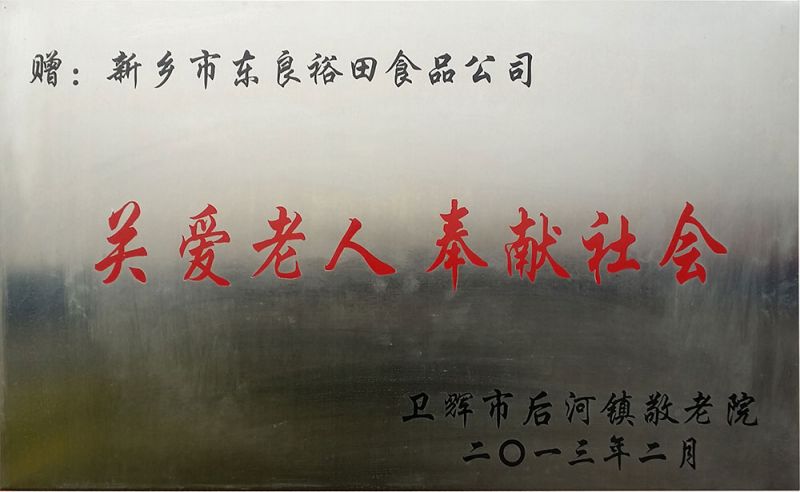 赠：新乡市东良裕田食品公司
关爱老人 奉献社会
卫辉市后河镇敬老院
二〇一三年二月